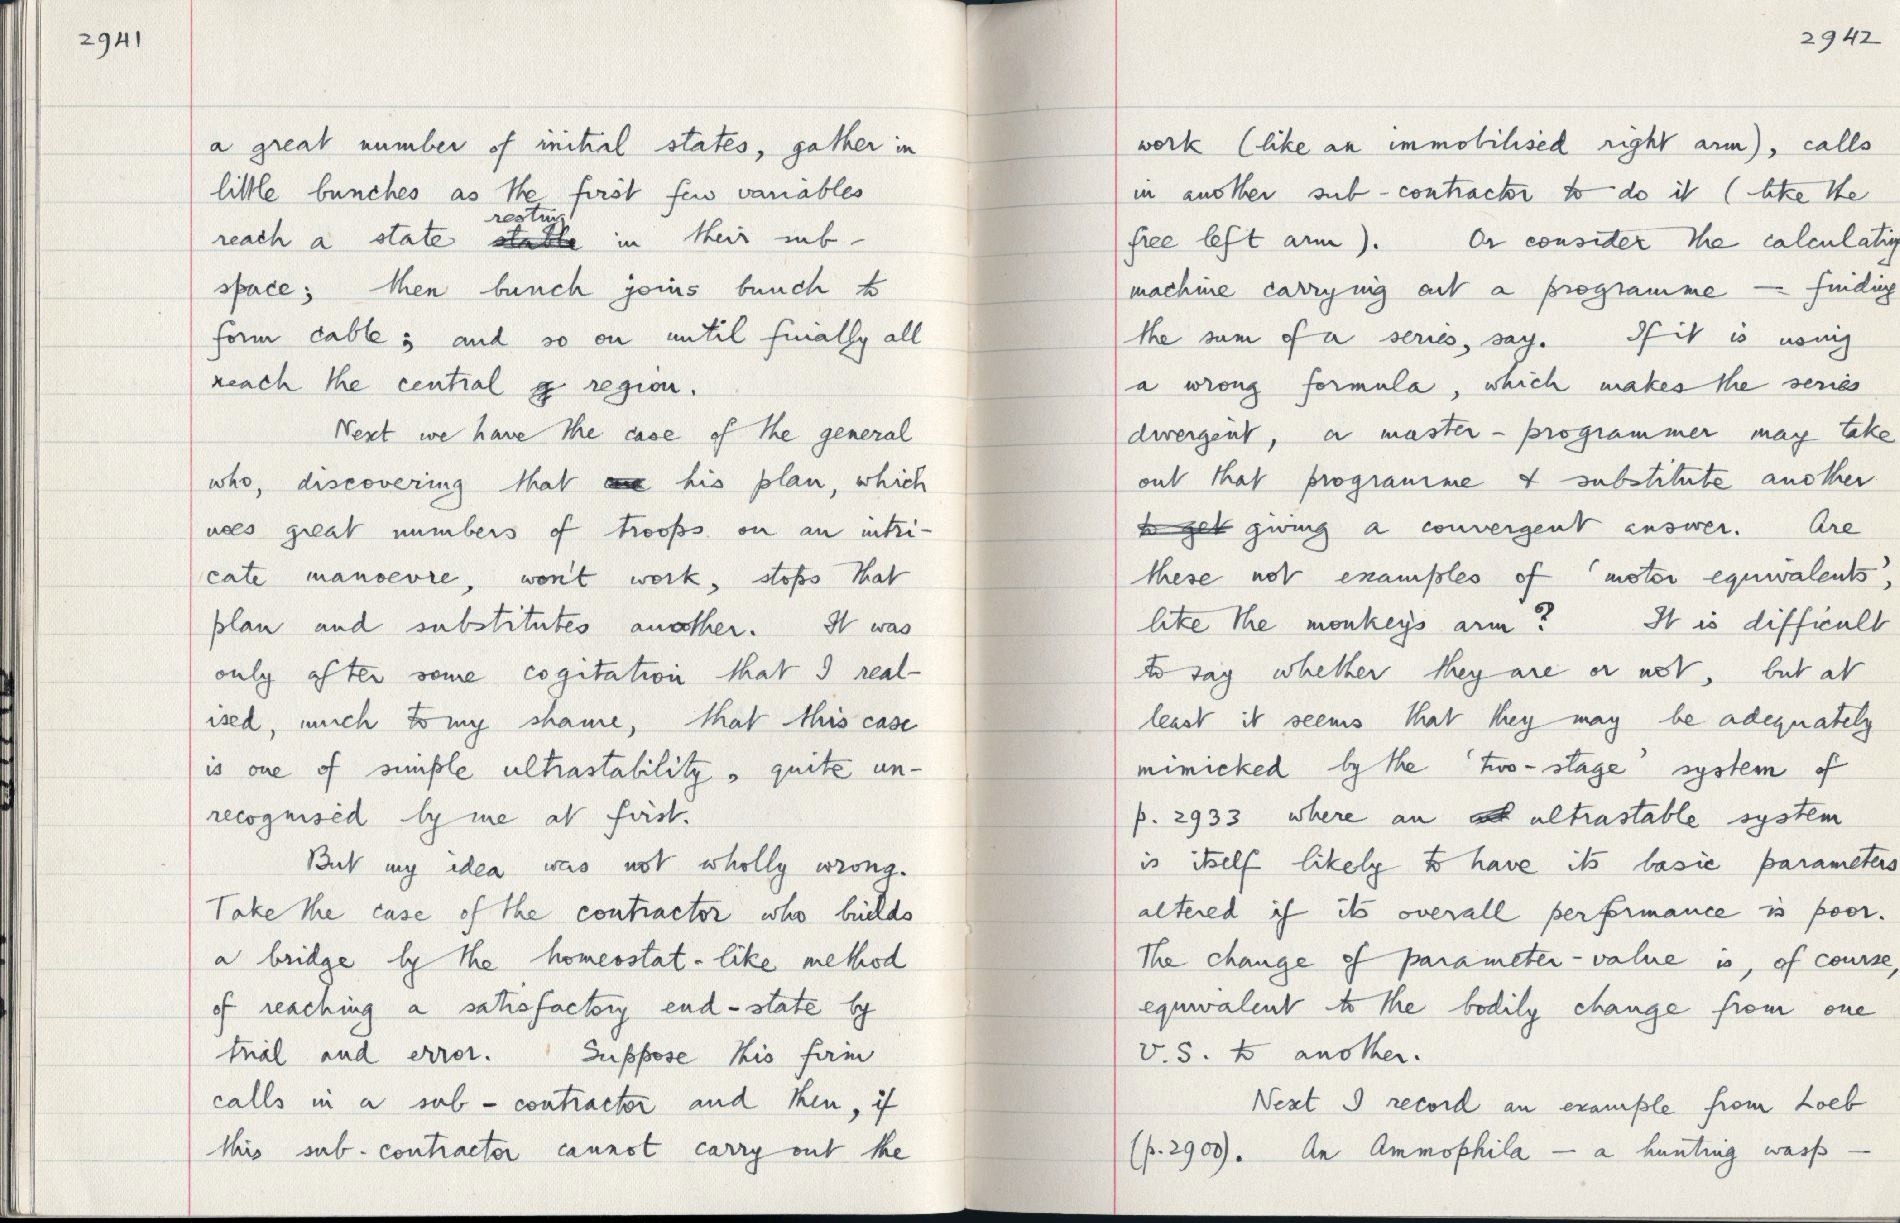 2941
a great number of initial states, gather in
little bunches as the first few variables
resting
reach a state stable in their sub-
space; then bunch joins bunch to
form cable; and so on until finially all
reach the central g region.
Next we have the case of the general
who, discovering that one his plan, which
uses great numbers of troops on an intri-
cate manoevre, won't work, stops that
plan and substitutes another. It was
only after some cogitation that I real-
ised, much to my shame, that this case
is one of simple ultrastability, quite un-
recognised by me at first.
But my idea was not wholly wrong.
Take the case of the contractor who builds
a bridge by the homeostat-like method
of reaching a satisfactory end-state by
trial and error. Suppose this firm
calls in a sub-contractor and then, if
this sub-contractor cannot carry out the
2942
work (like an immobilised right arm), calls
in another sub-contractor to do it (like the
free left arm). Or consider the calculating
machine carrying out a programme — finding
the sum of a series, say. If it is using
a wrong formula, which makes the series
divergent, a master-programmer may take
out that programme & substitute another
to get giving a convergent answer. Are
these not examples of 'motor equivalents',
like the monkey's arm? It is difficult
to say whether they are or not, but at
least it seems that they may be adequately
mimicked by the 'two-stage' system of
p. 2933 where an ultrastable system
is itself likely to have its basic parameters
altered if its overall performance is poor.
The change of parameter-value is, of course,
equivalent to the bodily change from one
U.S. to another.
Next I record an example from Loeb
(p.2900). An Ammophila — a hunting wasp —